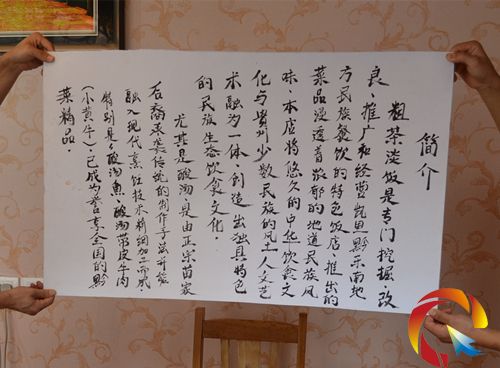 简介
粗茶淡饭是专门挖掘、改
良、推广和经营凯里黔东南地
方民族餐饮的特色饭店，推出的
菜品浸透着浓郁的地道民族风
味。本店将悠久的中华饮食文
化与贵州少数民族的风土人文艺
术融为一体，创造出独具特色
的民族生态饮食文化。
尤其是酸汤，是由正宗苗家
后裔承袭传统的制作手法并
融入现代烹饪技术精细加工而成，
特别是“酸汤鱼、酸汤带皮牛肉
（小黄牛）”已成为誉享全国的黔
菜精品。